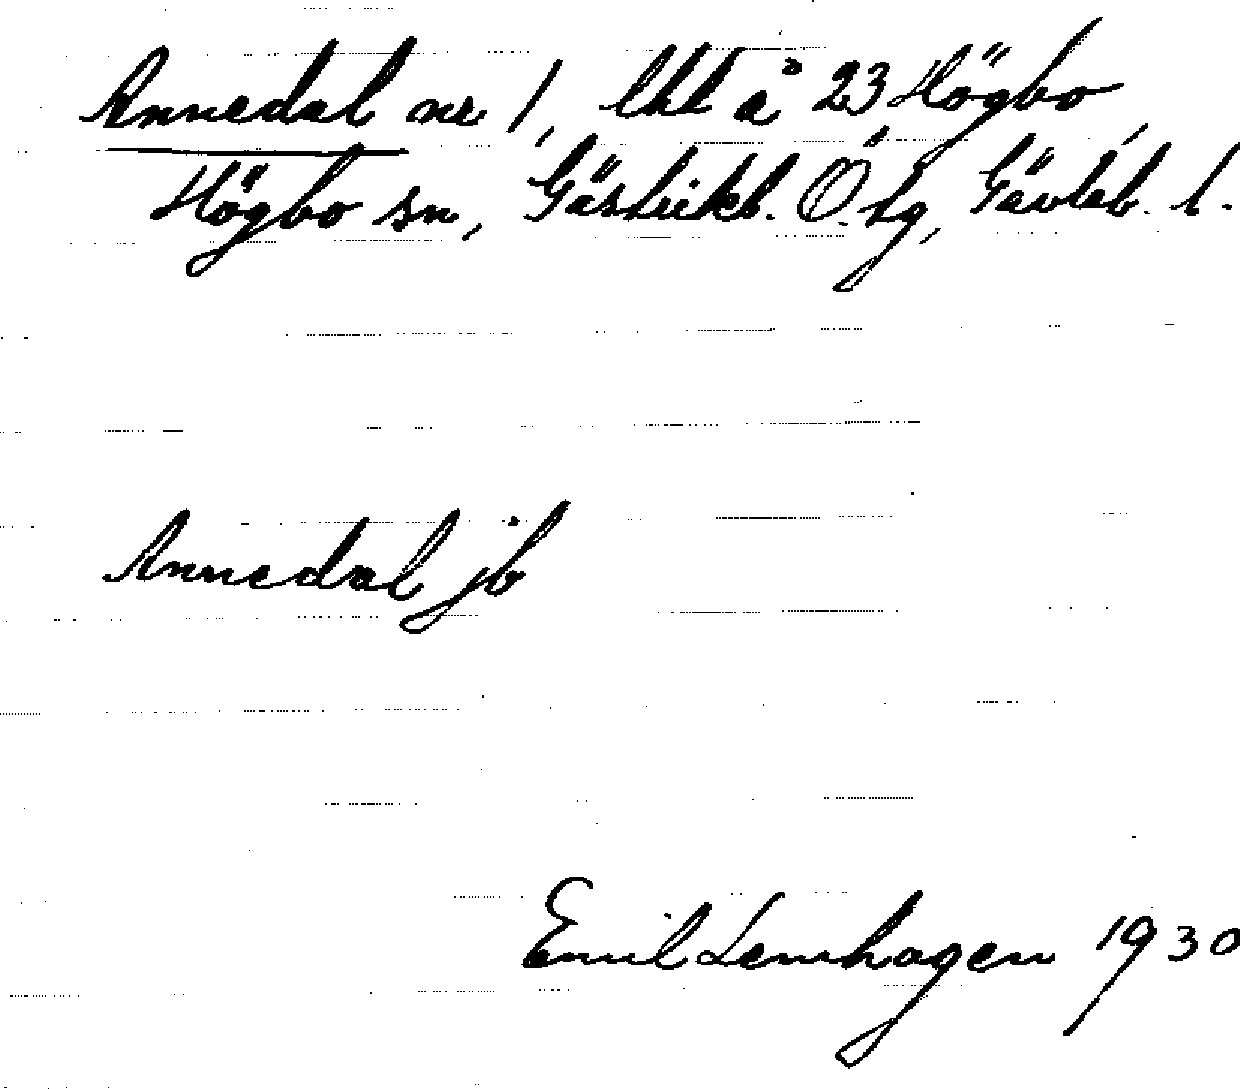 Annedal nr 1, lht å 23 Högbo,
Högbo sn, Gästrikl. Ö. tg, Gävleb. l.
Annedal jb
Emil Lemhagen 1930